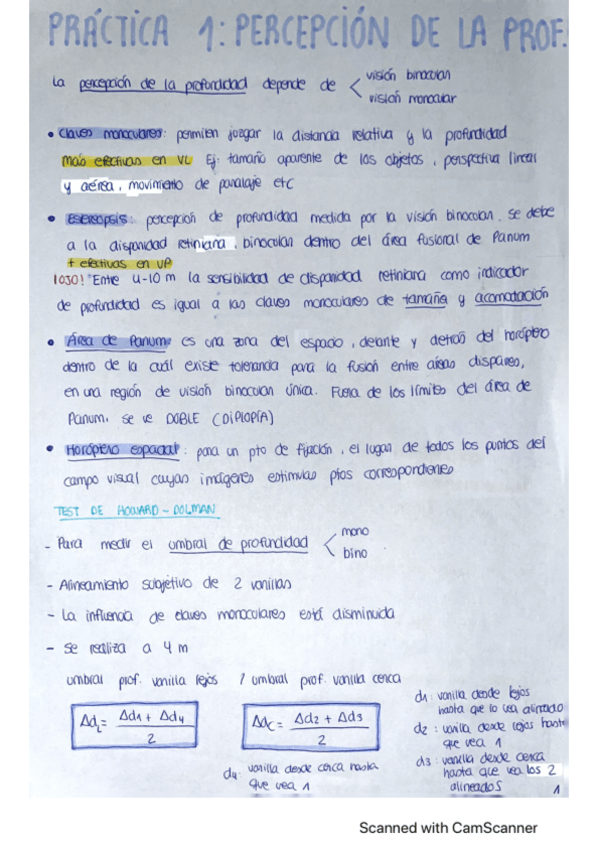 PRÁCTICA 1: PERCEPCIÓN DE LA PROF.
La percepción de la profundidad depende de < visión binocular
visión monocular
• Claves monoculares: permiten juzgar la distancia relativa y la profundidad
más efectivas en VL Ej: tamaño aparente de los objetos, perspectiva lineal
y aérea, movimiento de paralaje etc
• Estereopsis: percepción de profundidad medida por la visión binocular. Se debe
a la disparidad retiniana, binocular dentro del área fusional de Panum
+ efectivas en VP
¡OJO! *Entre 4-10 m la sensibilidad de disparidad retiniana como indicador
de profundidad es igual a las claves monoculares de tamaño y acomodación
• Área de Panum: es una zona del espacio, delante y detrás del horóptero
dentro de la cuál existe tolerancia para la fusión entre áreas dispares,
en una región de visión binocular única. Fuera de los límites del área de
Panum, se ve DOBLE (DIPLOPÍA)
• Horóptero espacial: para un pto de fijación, el lugar de todos los puntos del
campo visual cuyas imágenes estimulas ptos correspondientes
TEST DE HOWARD-DOLMAN
- Para medir el umbral de profundidad < mono
bino
- Alineamiento subjetivo de 2 varillas
- La influencia de claves monoculares está disminuida
- Se realiza a 4 m
umbral prof. varilla lejos / umbral prof. varilla cerca
ΔdL = Δd1 + Δd4 / 2
Δdc = Δd2 + Δd3 / 2
d1: varilla desde lejos
hasta que lo vea alineado
d2: varilla desde lejos hasta
que vea 1
d3: varilla desde cerca
hasta que vea los 2
alineados
d4: varilla desde cerca hasta
que vea 1
1
Scanned with CamScanner